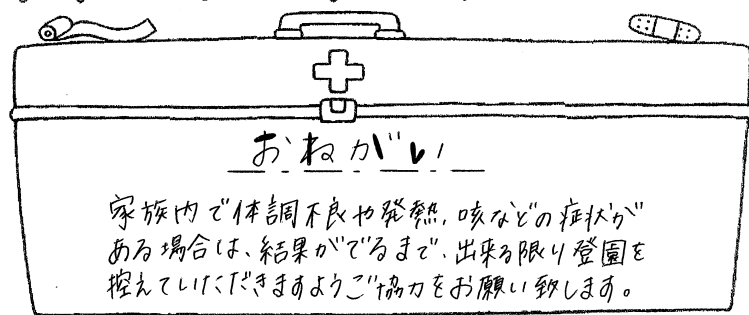 おねがい
家族内で体調不良や発熱、咳などの症状が
ある場合は、結果がでるまで、出来る限り登園を
控えていただきますようご協力をお願い致します。